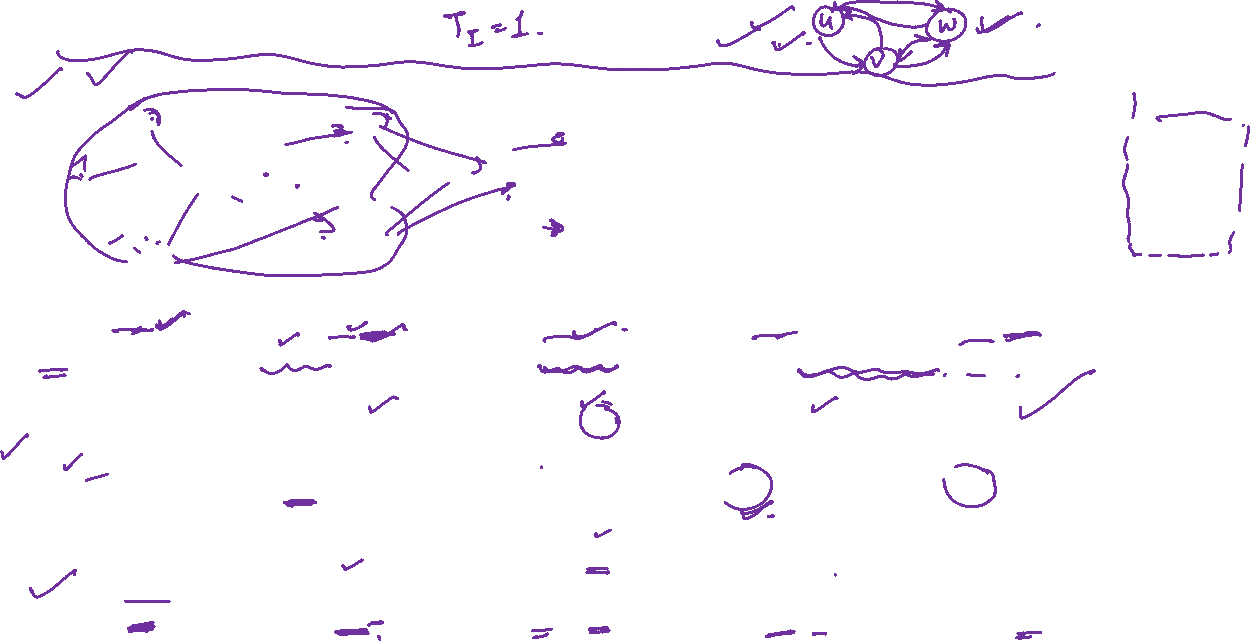 T_I = 1.
u w
v